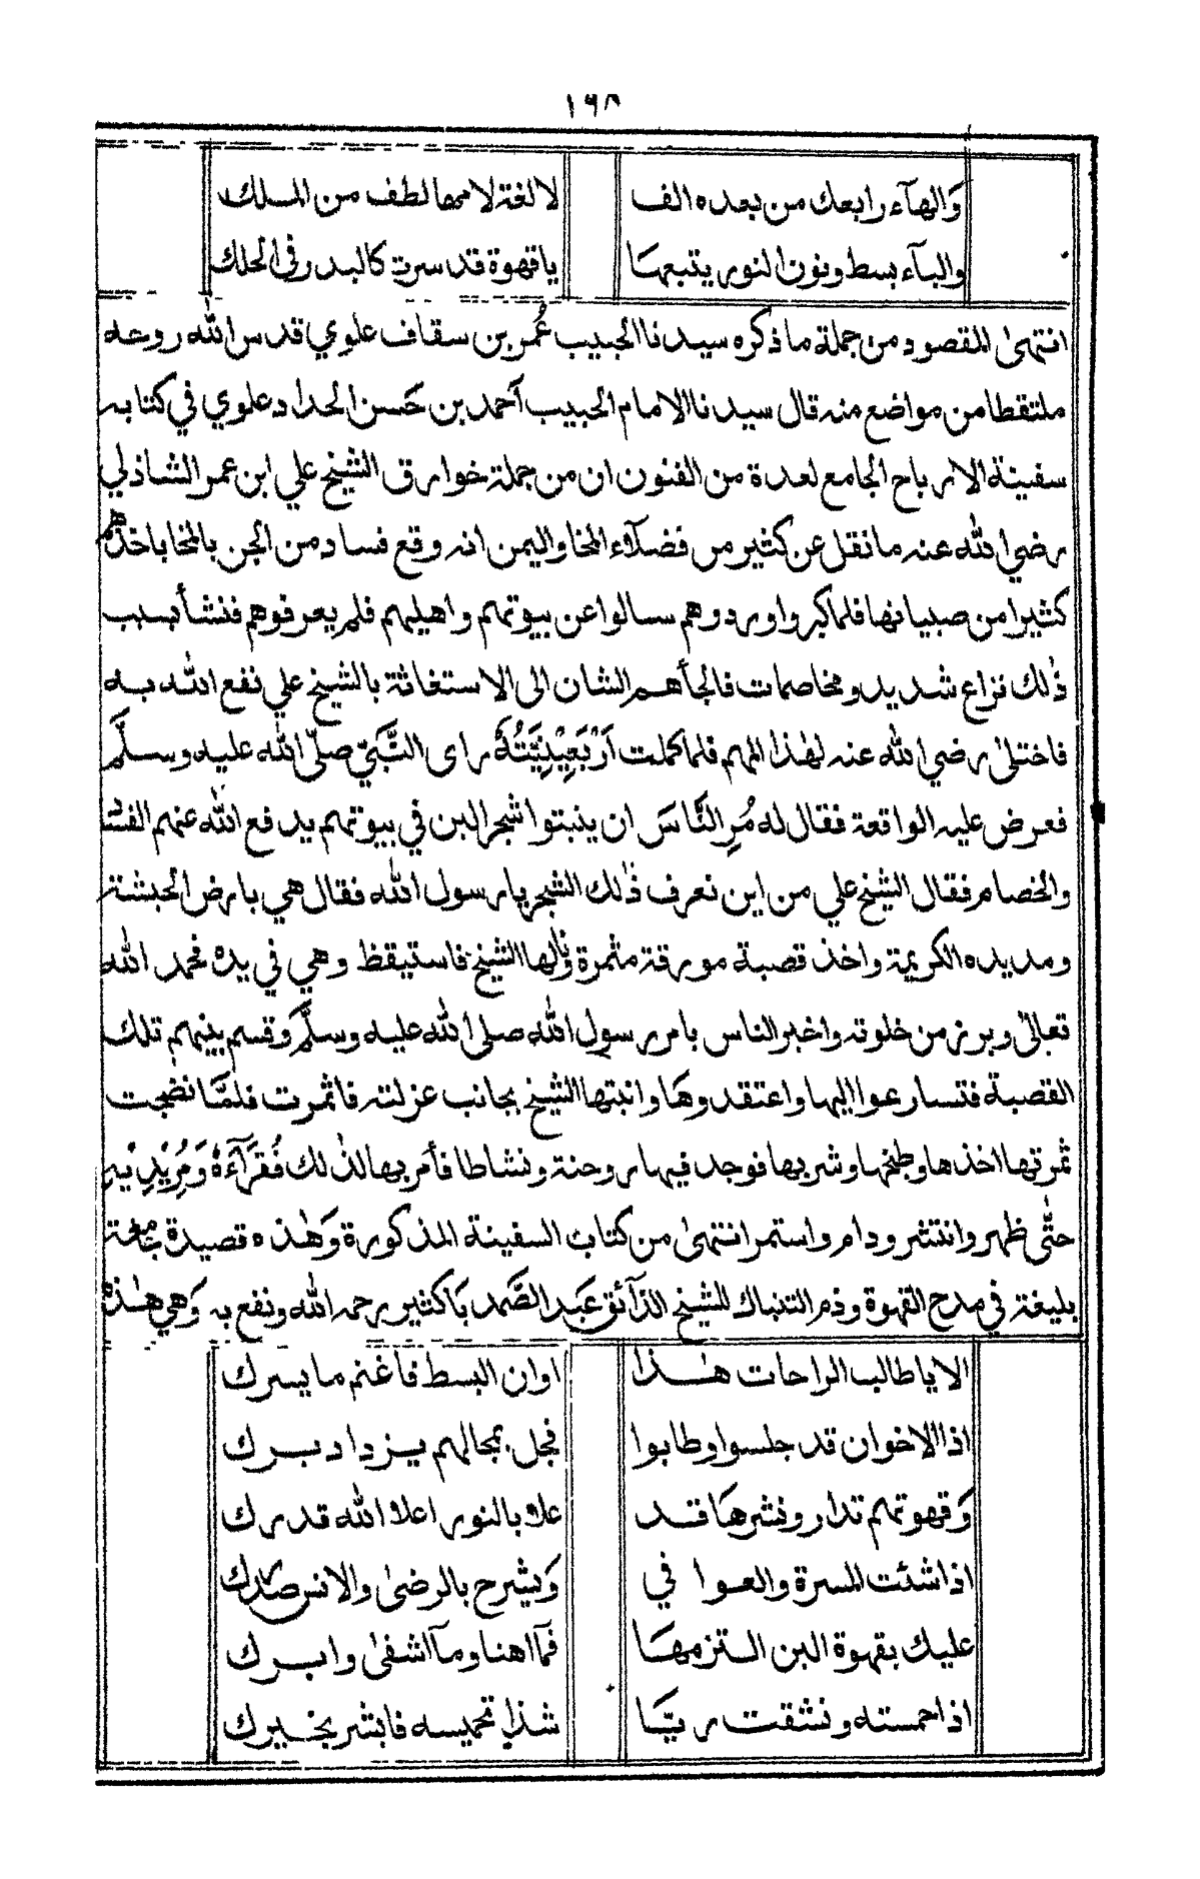 ١٦٨
والهآء رابعك من بعده الف لالفة لامها لطف من الملك
والبآء بسط ونون النور يتبعها ياقهوة قد سرت كالبدر في الحلك
انتهىٰ المقصود من جملة ما ذكره سيدنا الحبيب عُمر بن سقاف علوي قدس الله روحه
ملتقطا من مواضع منه قال سيدنا الامام الحبيب أحمد بن حَسن الحداد علوي في كتابه
سفينة الارباح الجامع لعدة من الفنون ان من جملة خوارق الشيخ علي ابن عمر الشاذلي
رضي الله عنه ما نقل عن كثير من فضلآء المخا واليمن انه وقع فساد من الجن بالمخا باخذهم
كثيرا من صبيانها فلما كبروا وردوهم سالوا عن بيوتهم واهليهم فلم يعرفوهم فنشأ بسبب
ذٰلك نزاع شديد ومخاصمات فالجأهم الشان الى الاستغاثة بالشيخ علي نفع الله به
فاختلىٰ رضي الله عنه لهٰذا المهم فلما كملت اَرْبَعِيْنِيَّتُهُ راى النَّبَيّ صلّى الله عليه وسلَّم
فعرض عليه الواقعة فقال له مُرِ النَّاسَ ان ينبتوا شجر البن في بيوتهم يدفع الله عنهم الفتنة
والخصام فقال الشيخ علي من اين نعرف ذٰلك الشجر يارسول الله فقال هي بارض الحبشة
ومد يده الكريمة واخذ قصبة مورقة مثمرة ونالها الشيخ فاستيقظ وهي في يده فحمد الله
تعالىٰ وبرز من خلوته واخبر الناس بامر رسول الله صلى الله عليه وسلَّم وقسم بينهم تلك
القصبة فتسارعوا اليها واعتقدوهَا وانبتها الشيخ بجانب عزلته فاثمرت فلمَّا نضجت
ثمرتها اخذها وطبخها وشربها فوجد فيها روحنة ونشاطا فأمر بها لذٰلك فُقَرَآءَهُ وَمُرِيْدِيْهِ
حتَّى ظهر وانتشر ودام واستمر انتهىٰ من كتاب السفينة المذكورة وَهٰذه قصيدة جامعة
بليغة في مدح القهوة وذم التنباك للشيخ الذَّآئق عَبد الصَّمد بَاكثير رحمه الله ونفع به وَهي هٰذه
الا ياطالب الراحات هٰذا اوان البسط فاغنم ما يسرك
اذا الاخوان قد جلسوا وطابوا فجل بمجالهم يزداد برك
وَقهوتهم تدار ونشرهَا قد علا بالنور اعلا الله قدرك
اذا شئت المسرة والعوافي وَيشرح بالرضىٰ والانس صدرك
عليك بقهوة البن التزمهَا فمآ اهنا ومآ اشفىٰ وابرك
اذا حمسته ونشقت ريَّا شذا تحميسه فابشر بخيرك